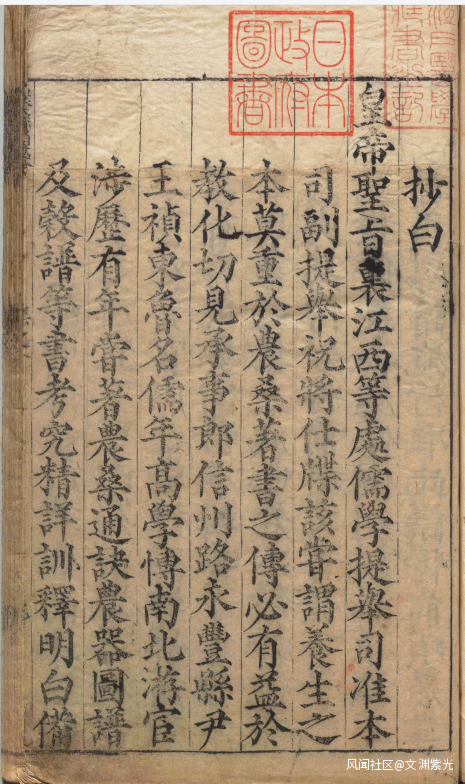 日本政府圖書
抄白
皇帝聖旨裏江西等處儒學提舉司准本
司副提舉祝將仕牒該嘗謂養生之
本莫重於農桑著書之傳必有益於
教化切見承事郎信州路永豐縣尹
王禎東魯名儒年高學博南北游宦
涉歷有年嘗著農桑通訣農器圖譜
及穀譜等書考究精詳訓釋明白備
风闻社区@文渊紫光